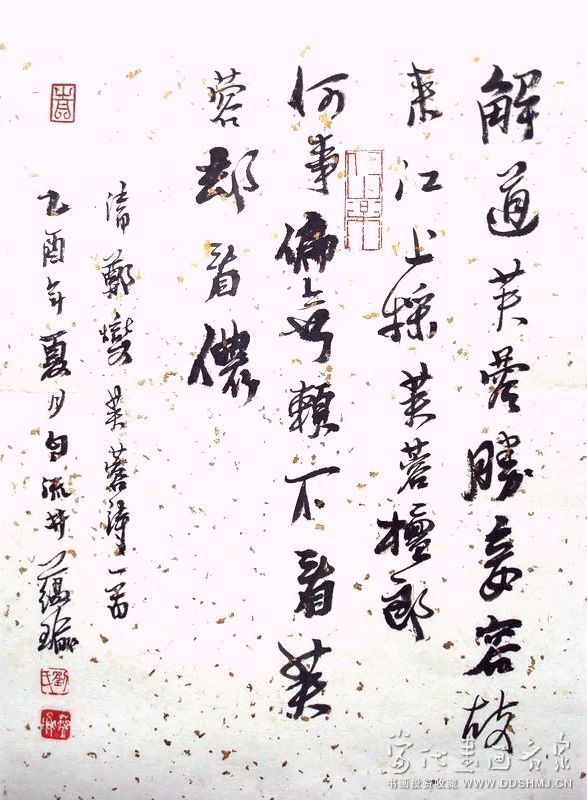 解道芙蓉勝妾容故
来江上採芙蓉檀郎
何事偏無賴不看芙
蓉却看儂
清鄭燮芙蓉詩一首
乙酉年夏月自流井蘊瑜
劉氏
当代书画名家
书画投资收藏 WWW.DDSHMJ.CN